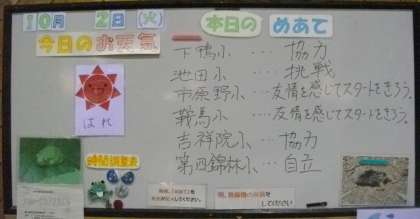 10月 2日(火)
本日の めあて
今日のお天気
はれ
下鴨小 … 協力
池田小 … 挑戦
市原野小 … 友情を感じてスタートをきろう。
鞍馬小 … 友情を感じてスタートをきろう。
吉祥院小 … 協力
第四錦林小 … 自立
時間調整表